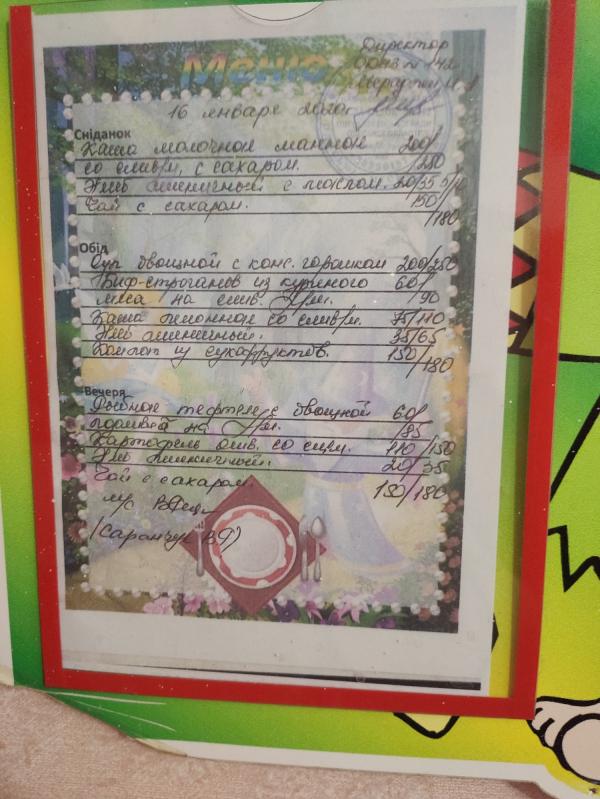 Меню
Директор
16 января 2020г.
Сніданок
Каша молочная манная 200/
со слив/м, с сахаром. /250
Хлеб пшеничный с маслом. 20/35 5/10
Чай с сахаром. 150
/180
Обід
Суп овощной с конс. горошком 200/250
Биф-строганов из куриного 60/
мяса на слив. /м. /90
Каша пшенная со слив/м. 75/110
Хлеб пшеничный. 35/65
Компот из сухофруктов. 150/180
Вечеря
Рыбная тефтеля с овощной 60/
на /м. /85
Картофель отв. со слив/м. 110/150
Хлеб пшеничный. 20/35
Чай с сахаром 150/180
м/с
(Саранчук В.Ф)